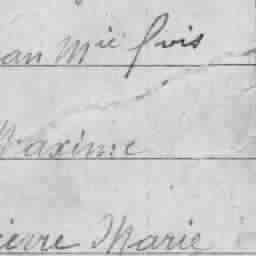 an Mie fois
Maxime
ierre Marie